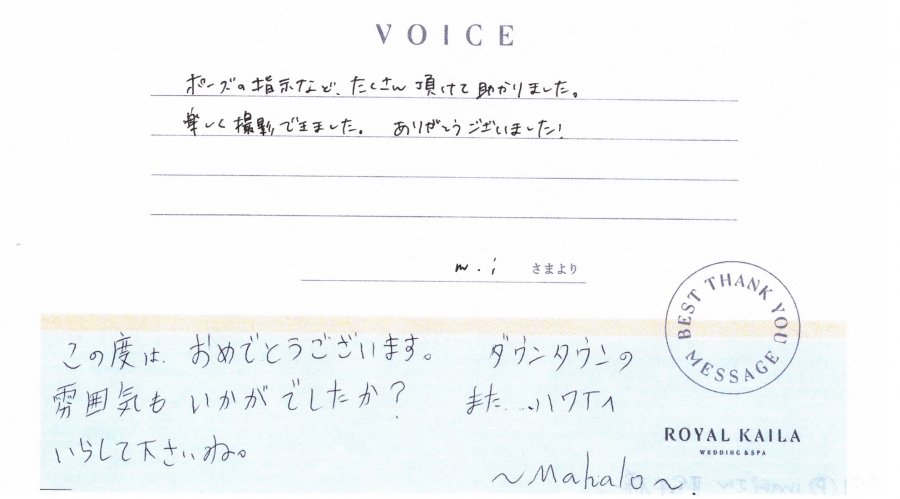 VOICE
ポーズの指示など、たくさん頂けて助かりました。
楽しく撮影できました。 ありがとうございました!
m.i さまより
BEST THANK YOU MESSAGE
この度は おめでとうございます。 ダウンタウンの
雰囲気も いかがでしたか? また...ハワイへ
いらして下さいね。
ROYAL KAILA
WEDDING & SPA
~Mahalo~.